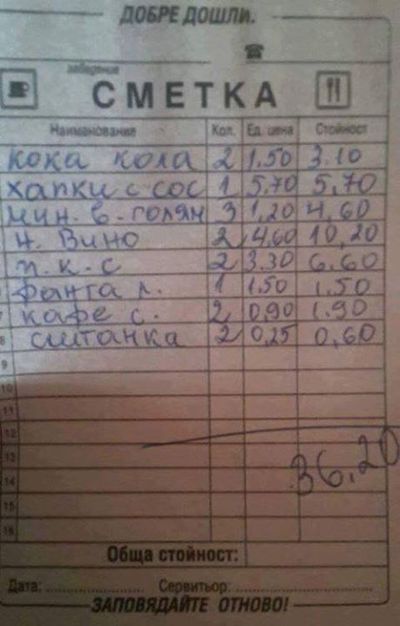 ДОБРЕ ДОШЛИ.
заведение
СМЕТКА
Наименование Кол. Ед. цена Стойност
кока кола 2 1.50 3.10
хапки с сос 1 5,70 5,70
мин. в. голям 3 1,20 4,60
н. Вино 2 4.60 10,20
п. к. с 2 3.30 6.60
фанта л. 1 1.50 1.50
7 кафе с. 2 0,90 1.90
8 сметанка 2 0,25 0,60
9
10
11
12
13
14
36,20
15
16
Обща стойност:
Дата: Сервитьор:
ЗАПОВЯДАЙТЕ ОТНОВО!